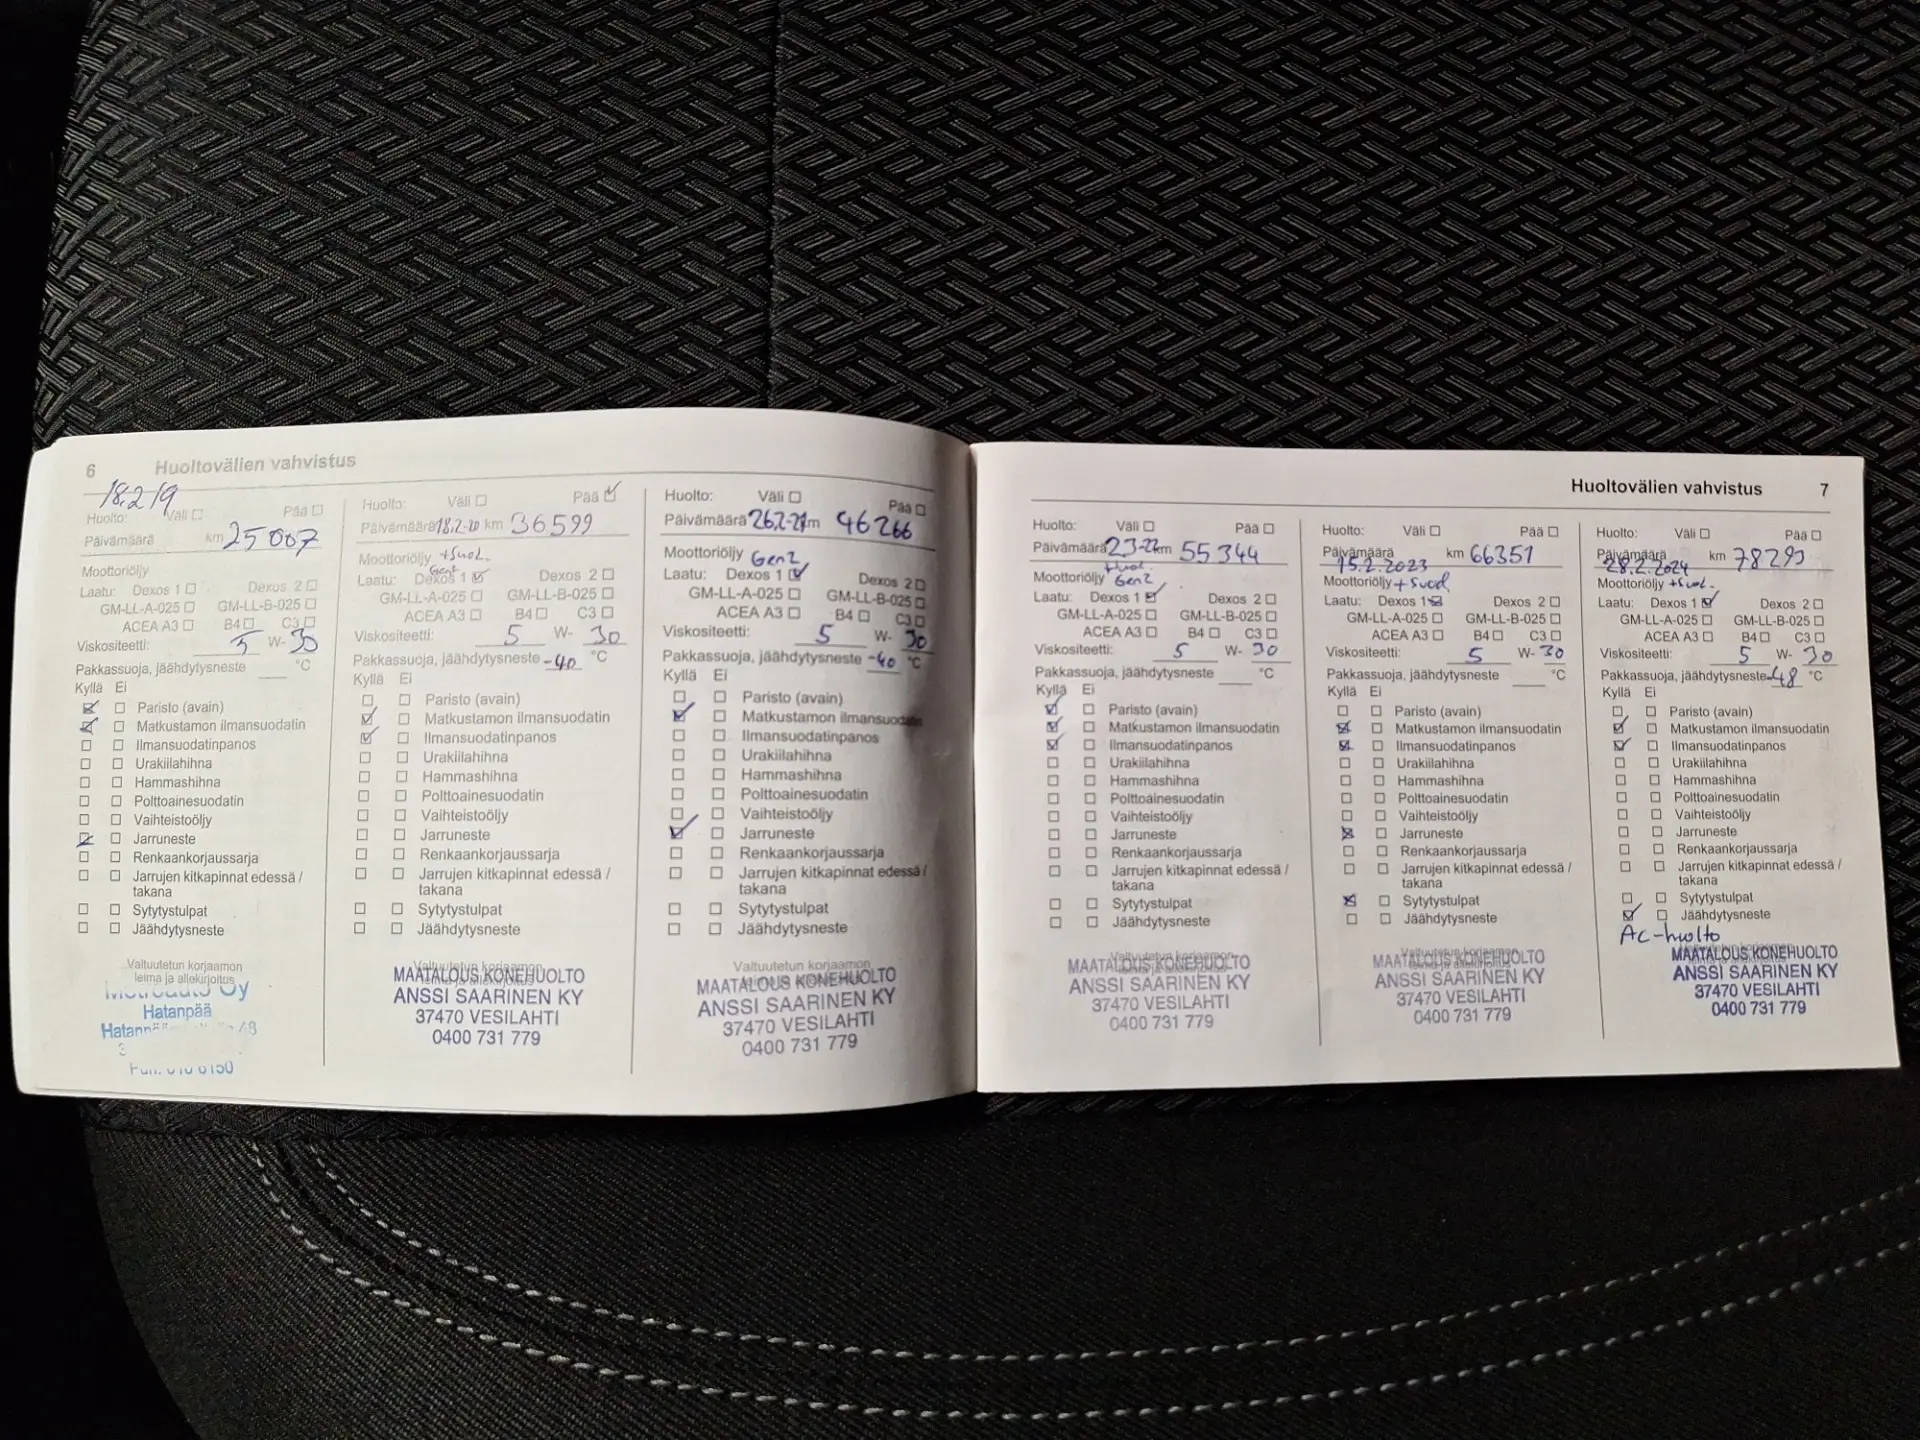 6 Huoltovälien vahvistus
18.2 19
Huolto: Väli Pää
Päivämäärä km 25 007
Moottoriöljy
Laatu: Dexos 1 Dexos 2
GM-LL-A-025 GM-LL-B-025
ACEA A3 B4 C3
Viskositeetti: 5 W- 30
Pakkassuoja, jäähdytysneste °C
Kyllä Ei
Paristo (avain)
Matkustamon ilmansuodatin
Ilmansuodatinpanos
Urakiilahihna
Hammashihna
Polttoainesuodatin
Vaihteistoöljy
Jarruneste
Renkaankorjaussarja
Jarrujen kitkapinnat edessä /
takana
Sytytystulpat
Jäähdytysneste
Valtuutetun korjaamon
leima ja allekirjoitus
Hatanpää
Huolto: Väli Pää
Päivämäärä 18.2-20 km 36599
Moottoriöljy +suod.
Gen2
Laatu: Dexos 1 Dexos 2
GM-LL-A-025 GM-LL-B-025
ACEA A3 B4 C3
Viskositeetti: 5 W- 30
Pakkassuoja, jäähdytysneste -40 °C
Kyllä Ei
Paristo (avain)
Matkustamon ilmansuodatin
Ilmansuodatinpanos
Urakiilahihna
Hammashihna
Polttoainesuodatin
Vaihteistoöljy
Jarruneste
Renkaankorjaussarja
Jarrujen kitkapinnat edessä /
takana
Sytytystulpat
Jäähdytysneste
Valtuutetun korjaamon
leima ja allekirjoitus
MAATALOUS KONEHUOLTO
ANSSI SAARINEN KY
37470 VESILAHTI
0400 731 779
Huolto: Väli Pää
Päivämäärä 26.2-21 km 46266
Moottoriöljy Gen2
Laatu: Dexos 1 Dexos 2
GM-LL-A-025 GM-LL-B-025
ACEA A3 B4 C3
Viskositeetti: 5 W- 30
Pakkassuoja, jäähdytysneste -40 °C
Kyllä Ei
Paristo (avain)
Matkustamon ilmansuodatin
Ilmansuodatinpanos
Urakiilahihna
Hammashihna
Polttoainesuodatin
Vaihteistoöljy
Jarruneste
Renkaankorjaussarja
Jarrujen kitkapinnat edessä /
takana
Sytytystulpat
Jäähdytysneste
Valtuutetun korjaamon
leima ja allekirjoitus
MAATALOUS KONEHUOLTO
ANSSI SAARINEN KY
37470 VESILAHTI
0400 731 779
Huoltovälien vahvistus 7
Huolto: Väli Pää
Päivämäärä 23-22 km 55344
+suod.
Moottoriöljy Gen2
Laatu: Dexos 1 Dexos 2
GM-LL-A-025 GM-LL-B-025
ACEA A3 B4 C3
Viskositeetti: 5 W- 30
Pakkassuoja, jäähdytysneste °C
Kyllä Ei
Paristo (avain)
Matkustamon ilmansuodatin
Ilmansuodatinpanos
Urakiilahihna
Hammashihna
Polttoainesuodatin
Vaihteistoöljy
Jarruneste
Renkaankorjaussarja
Jarrujen kitkapinnat edessä /
takana
Sytytystulpat
Jäähdytysneste
Valtuutetun korjaamon
leima ja allekirjoitus
MAATALOUS KONEHUOLTO
ANSSI SAARINEN KY
37470 VESILAHTI
0400 731 779
Huolto: Väli Pää
Päivämäärä km 66351
15.2.2023
Moottoriöljy +suod
Laatu: Dexos 1 Dexos 2
GM-LL-A-025 GM-LL-B-025
ACEA A3 B4 C3
Viskositeetti: 5 W- 30
Pakkassuoja, jäähdytysneste °C
Kyllä Ei
Paristo (avain)
Matkustamon ilmansuodatin
Ilmansuodatinpanos
Urakiilahihna
Hammashihna
Polttoainesuodatin
Vaihteistoöljy
Jarruneste
Renkaankorjaussarja
Jarrujen kitkapinnat edessä /
takana
Sytytystulpat
Jäähdytysneste
Valtuutetun korjaamon
leima ja allekirjoitus
MAATALOUS KONEHUOLTO
ANSSI SAARINEN KY
37470 VESILAHTI
0400 731 779
Huolto: Väli Pää
Päivämäärä km 78293
28.2.2024
Moottoriöljy +suod.
Laatu: Dexos 1 Dexos 2
GM-LL-A-025 GM-LL-B-025
ACEA A3 B4 C3
Viskositeetti: 5 W- 30
Pakkassuoja, jäähdytysneste -48 °C
Kyllä Ei
Paristo (avain)
Matkustamon ilmansuodatin
Ilmansuodatinpanos
Urakiilahihna
Hammashihna
Polttoainesuodatin
Vaihteistoöljy
Jarruneste
Renkaankorjaussarja
Jarrujen kitkapinnat edessä /
takana
Sytytystulpat
Jäähdytysneste
AC-huolto
MAATALOUS KONEHUOLTO
ANSSI SAARINEN KY
37470 VESILAHTI
0400 731 779